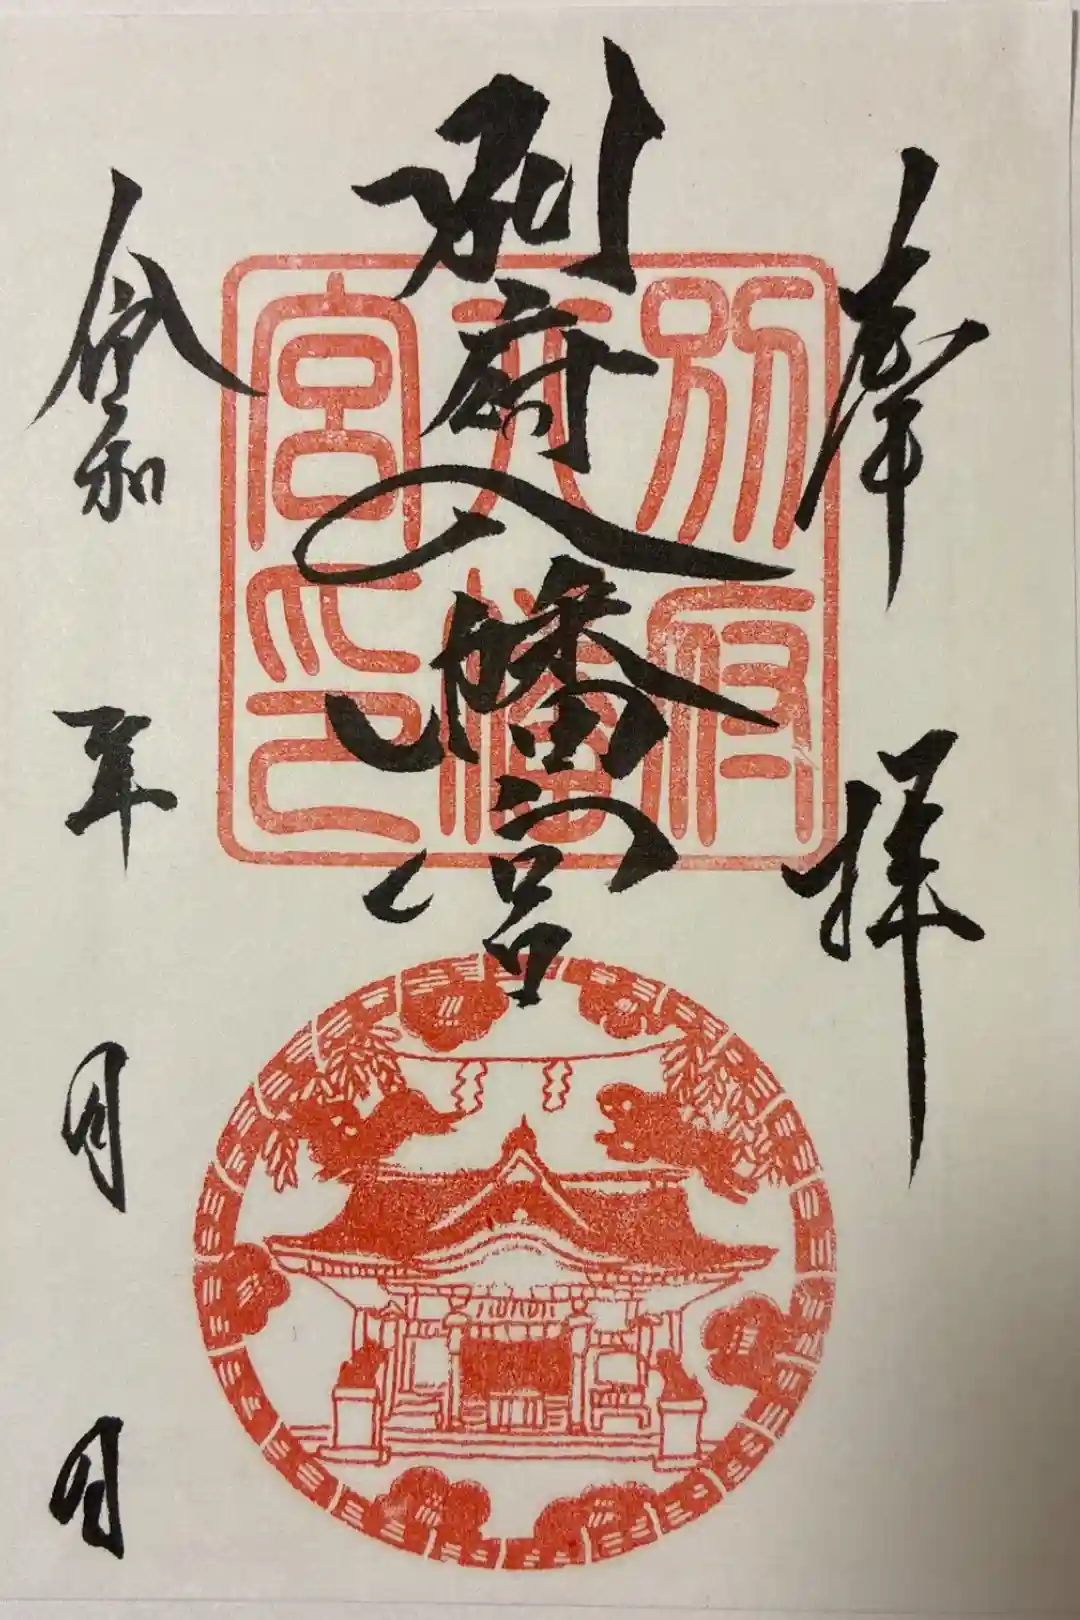 奉拝
別府八幡宮
別府八幡宮印
令和 年 月 日